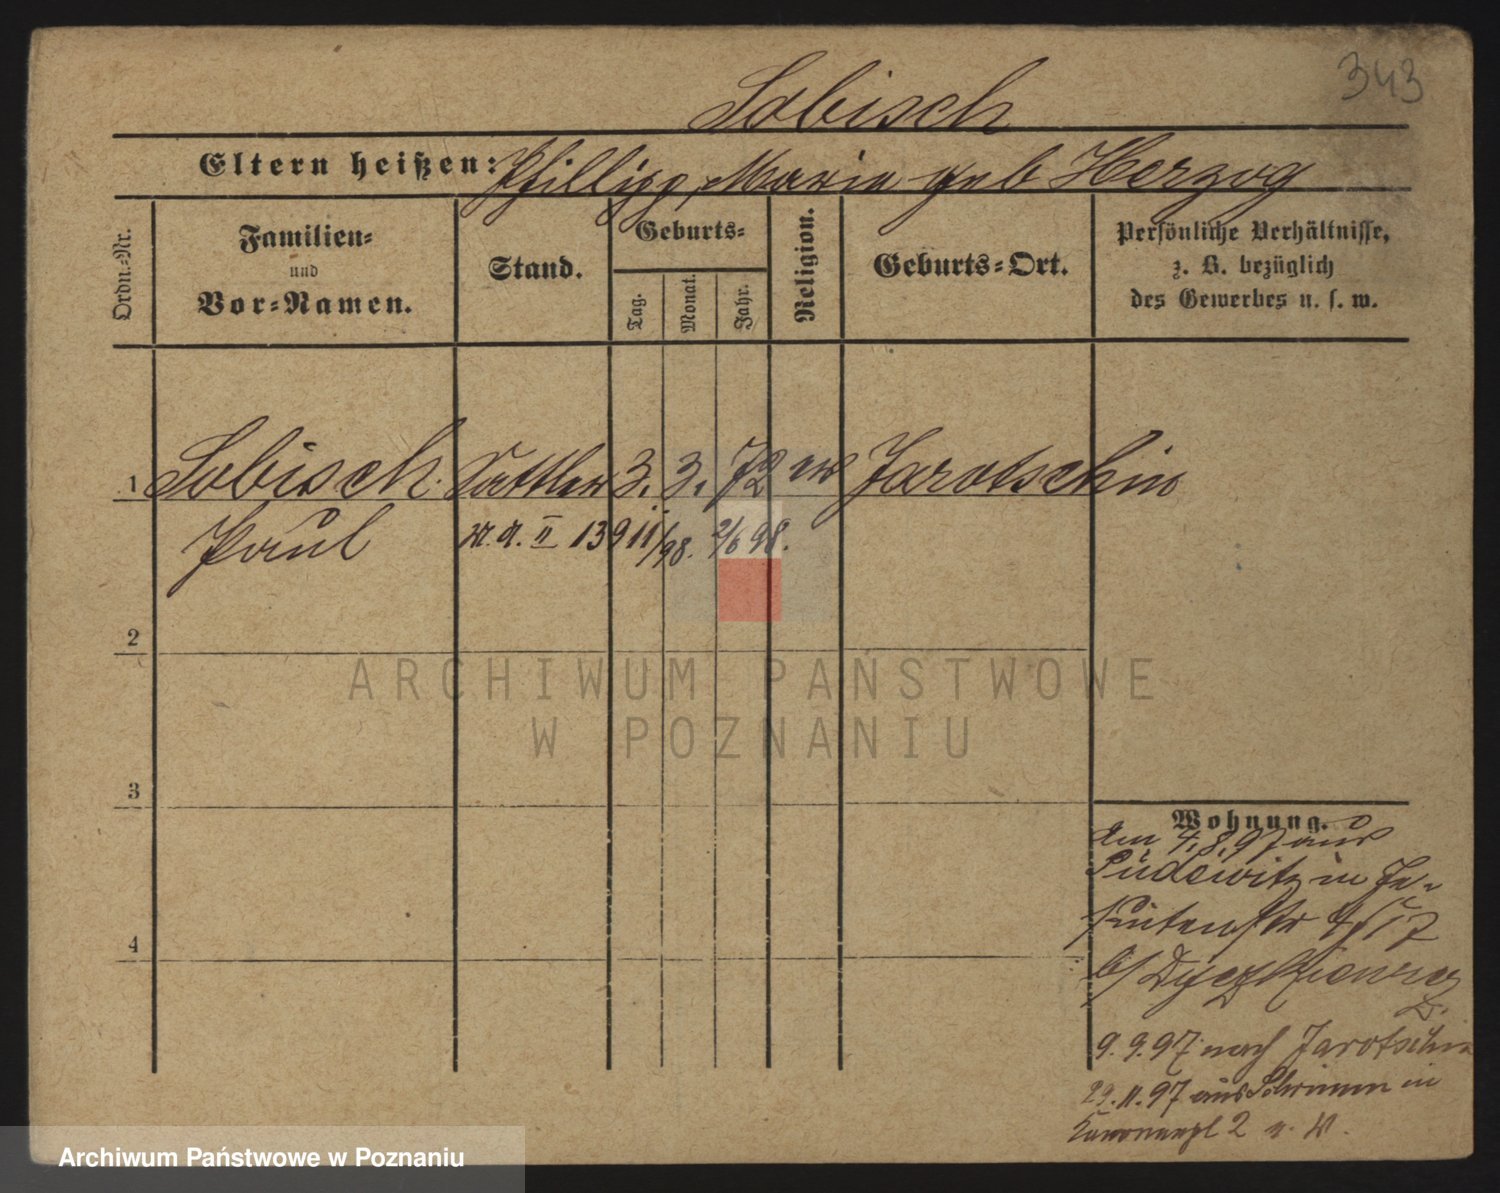 343
Sobisch
Eltern heißen: Phillipp, Maria geb Herzog
Ordn.-Nr.
Familien-
und
Vor-Namen.
Stand.
Geburts-
Tag.
Monat.
Jahr.
Religion.
Geburts-Ort.
Persönliche Verhältnisse,
z. B. bezüglich
des Gewerbes u. s. w.
1 Sobisch Sattler 3. 3. 72 ev Jarotschin
Paul II 1391 II/98. 2/6 98.
2
3
4
Wohnung.
Am 4.8.97 aus
Pudewitz in Je-
suitenstr
b/
9.9.97 nach Jarotschin
29.11.97 aus Schrimm in
Kanonenpl 2
ARCHIWUM PAŃSTWOWE
W POZNANIU
Archiwum Państwowe w Poznaniu